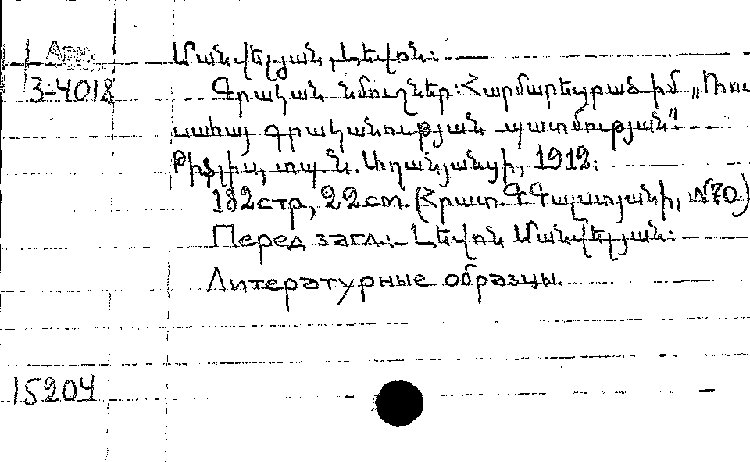 Арм.
3-4018
Մանվելյան, Լևոն.
Գրական նմուշներ: Հարմարեցրած իմ „Ռու-
սահայ գրականության պատմության".
Թիֆլիս, տպ. Ն. Աղանյանցի, 1912.
182 стр., 22 см. (Հրատ. №70)
Перед загл.: Լևոն Մանվելյան:
Литературные образцы.
15204